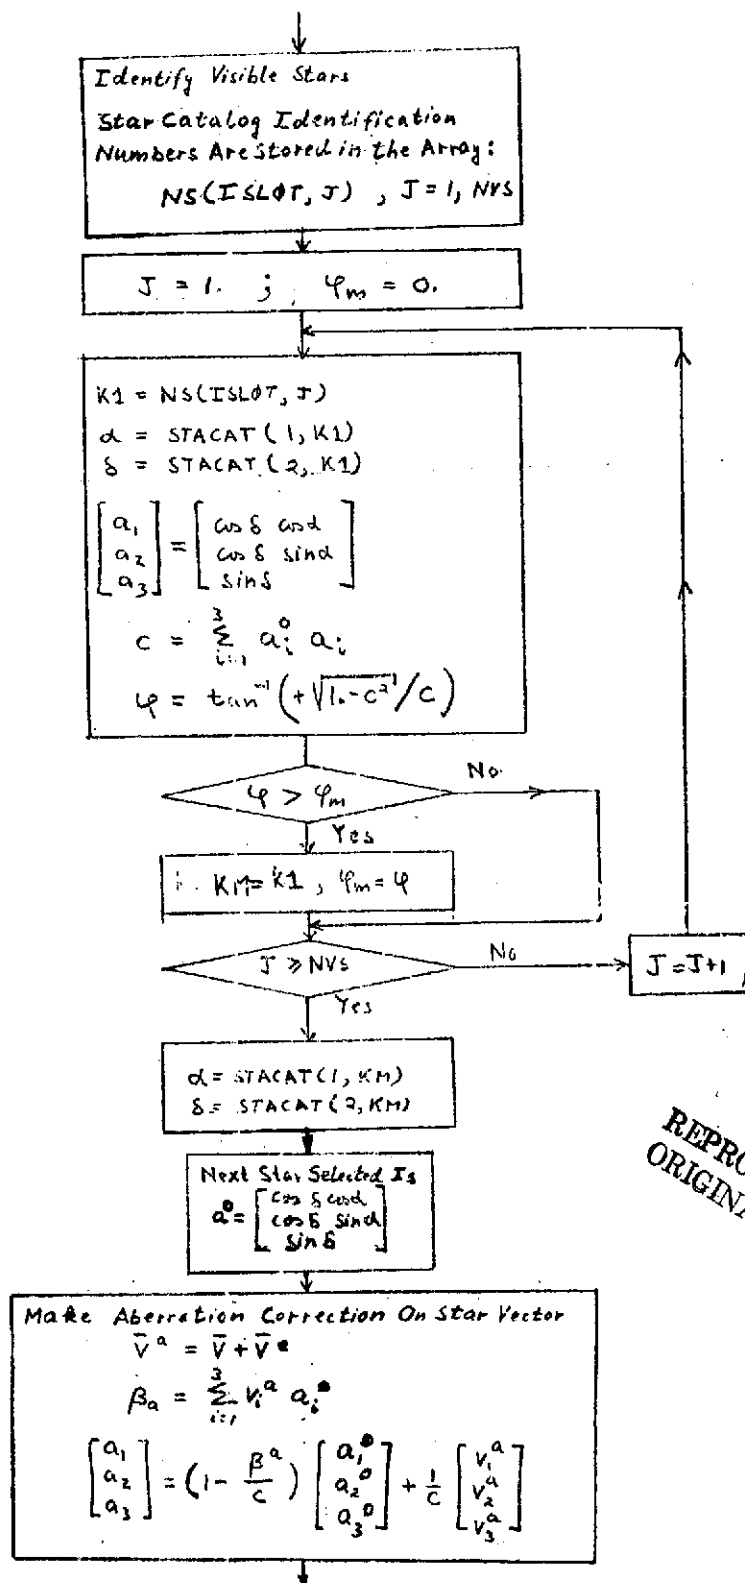 Identify Visible Stars
Star Catalog Identification
Numbers Are Stored in the Array:
NS(ISLØT, J) , J = 1, NVS
J = 1. ; φm = 0.
K1 = NS(ISLØT, J)
α = STACAT(1, K1)
δ = STACAT(2, K1)
[a1 a2 a3] = [cos δ cos α
cos δ sin α
sin δ]
c = Σ(i=1 to 3) ai⁰ ai
φ = tan⁻¹(+√(1.-c²)/c)
φ > φm
No
Yes
KM = K1, φm = φ
J ≥ NVS
No
J = J+1
Yes
α = STACAT(1, KM)
δ = STACAT(2, KM)
Next Star Selected Is
a⁰ = [cos δ cos α
cos δ sin α
sin δ]
REPRO
ORIGINA
Make Aberration Correction On Star Vector
V̄ᵃ = V̄ + V̄ᵉ
βa = Σ(i=1 to 3) Viᵃ ai⁰
[a1 a2 a3] = (1 - βᵃ/c) [a1⁰ a2⁰ a3⁰] + 1/c [V1ᵃ V2ᵃ V3ᵃ]